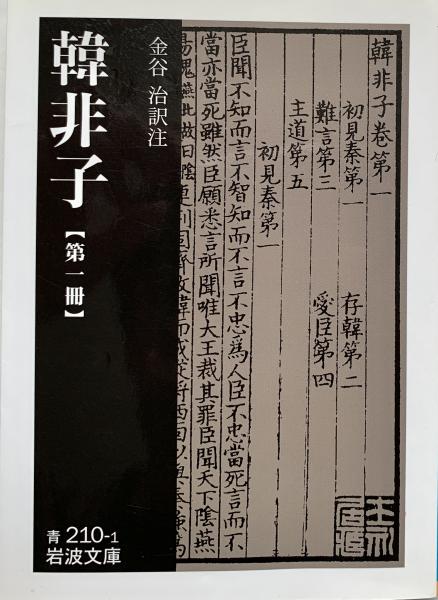 韓非子【第一冊】
金谷 治訳注
韓非子卷第一
初見秦第一 存韓第二
難言第三 愛臣第四
主道第五
初見秦第一
臣聞不知而言不智知而不言不忠爲人臣不忠當死言而不
當亦當死雖然臣願悉言所聞唯大王裁其罪臣聞天下陰燕
青 210-1
岩波文庫